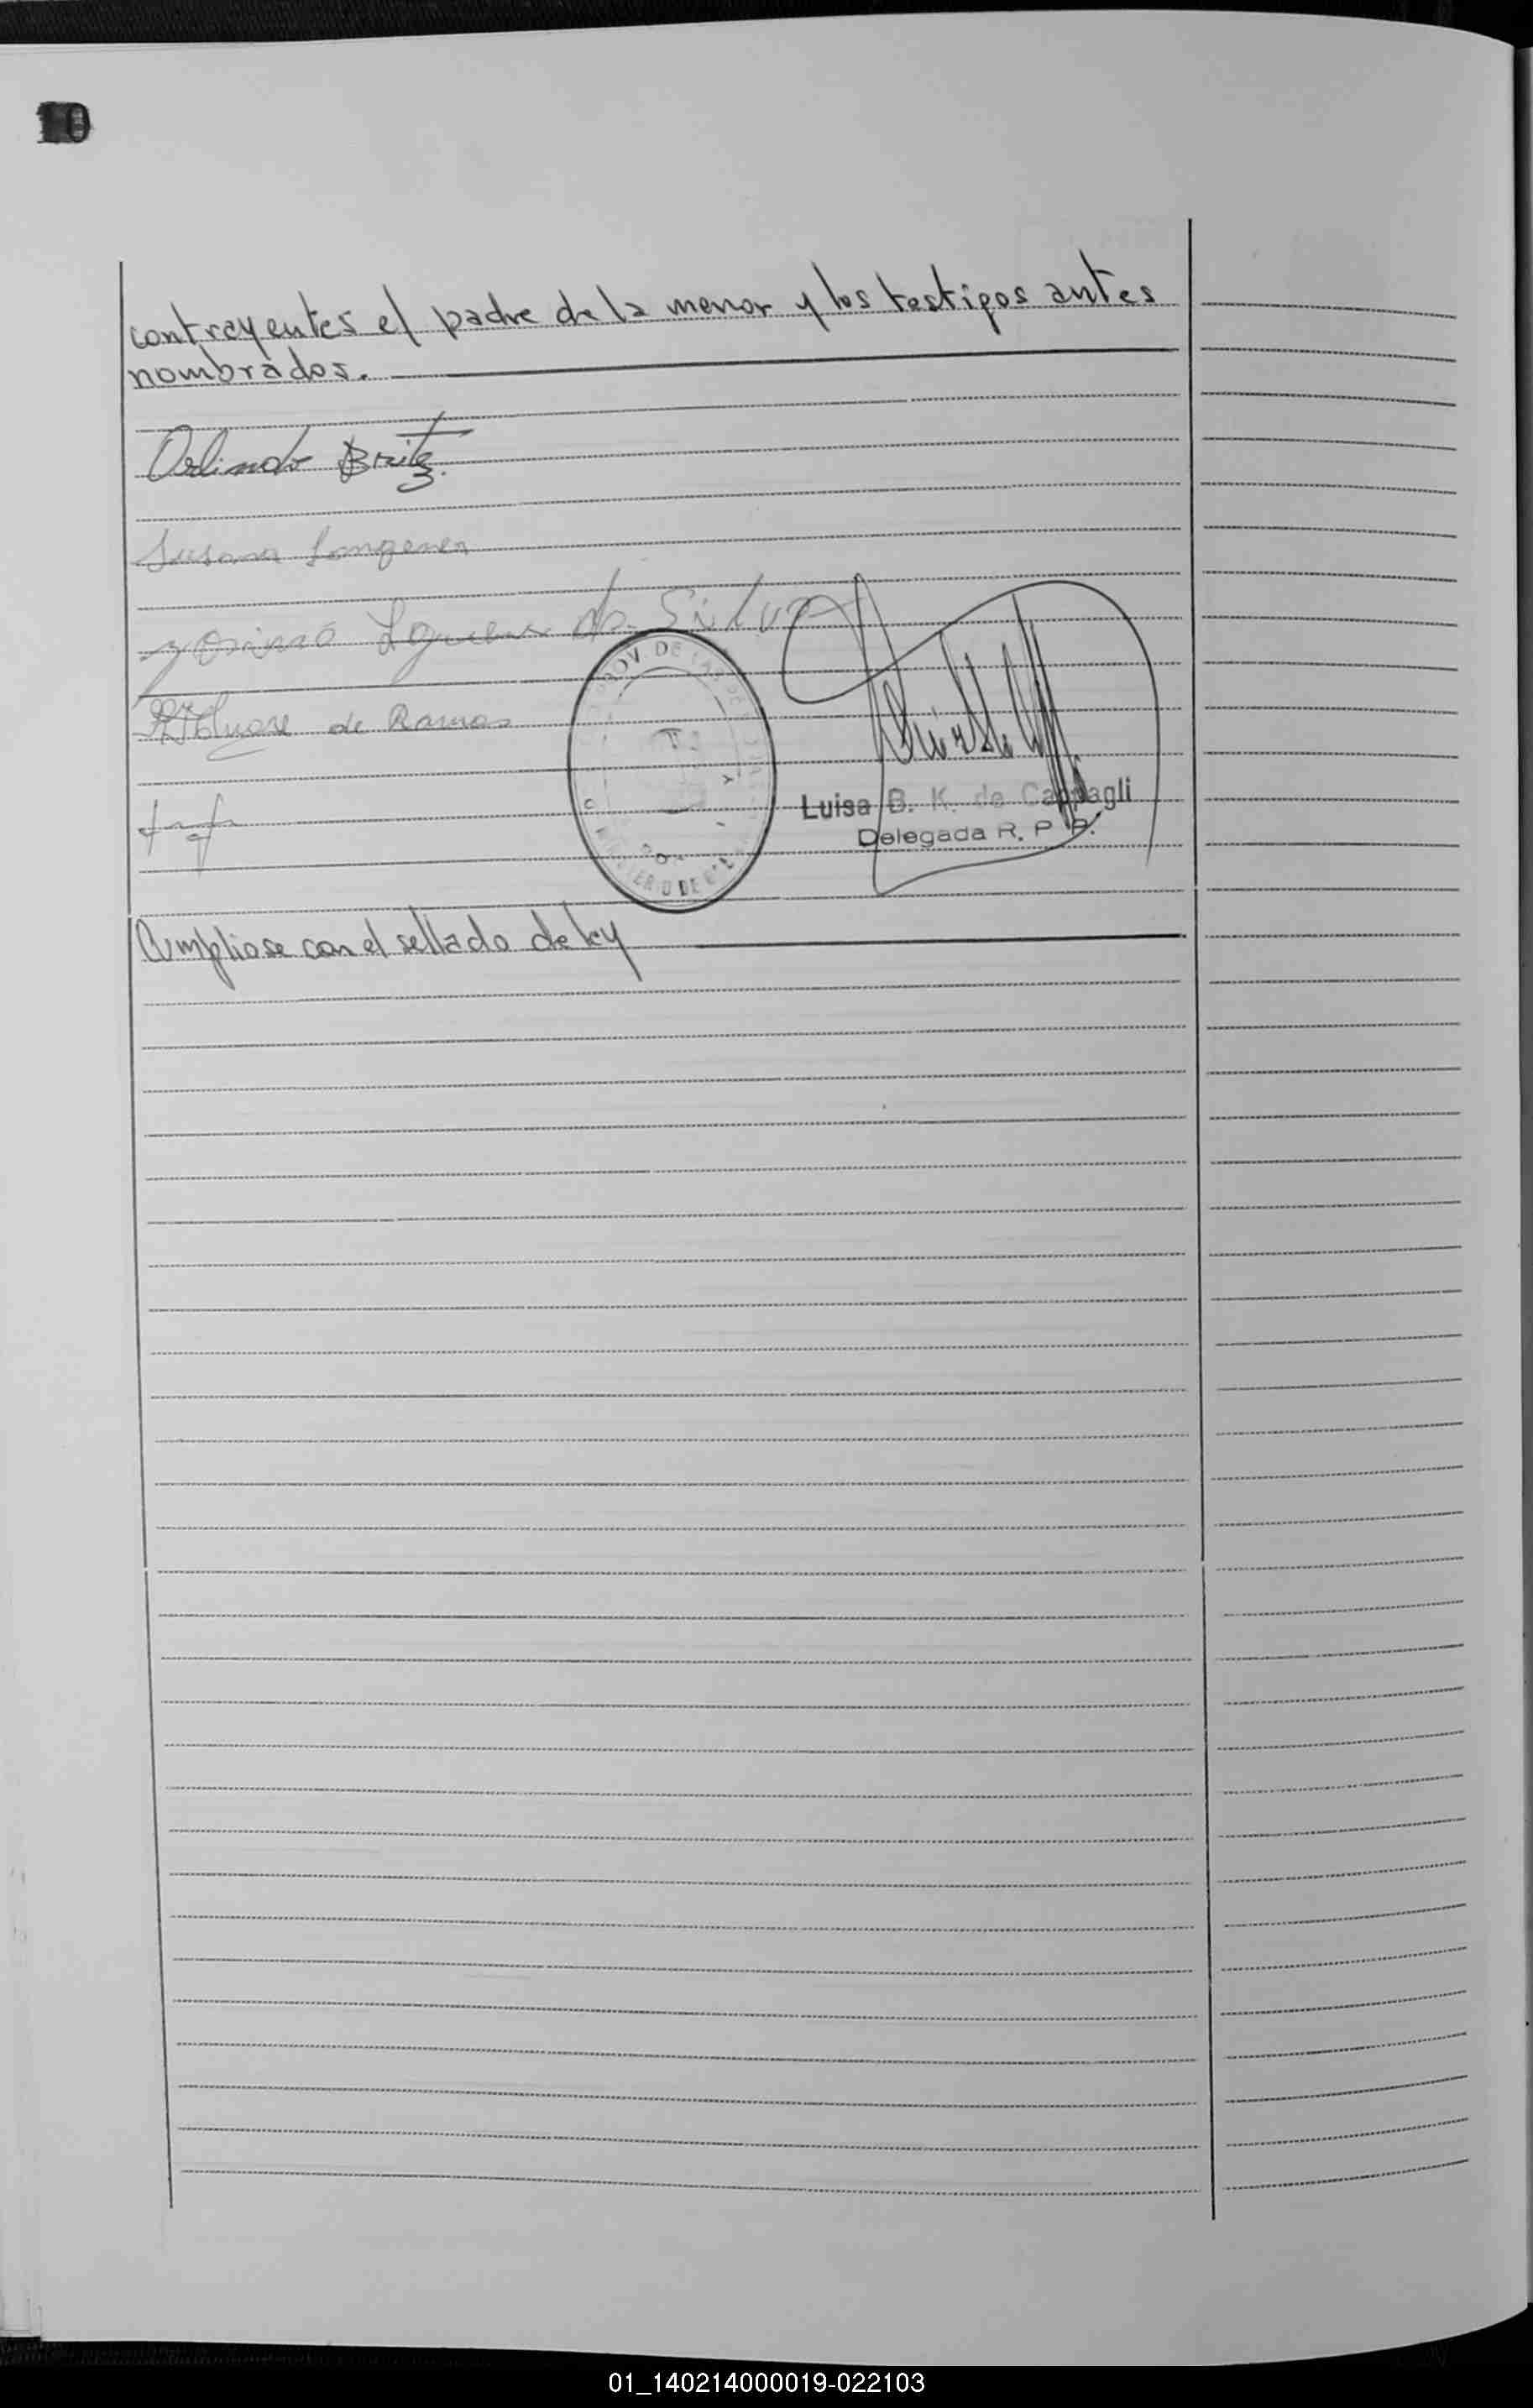 10
contrayentes el padre de la menor y los testigos antes
nombrados.
Orlindo Britez.
Susana
da Silva
de Ramos
PROV. DE
MINISTERIO DE
Luisa B. K. de Cappagli
Delegada R. P. P.
Cumpliose con el sellado de ley
01_140214000019-022103